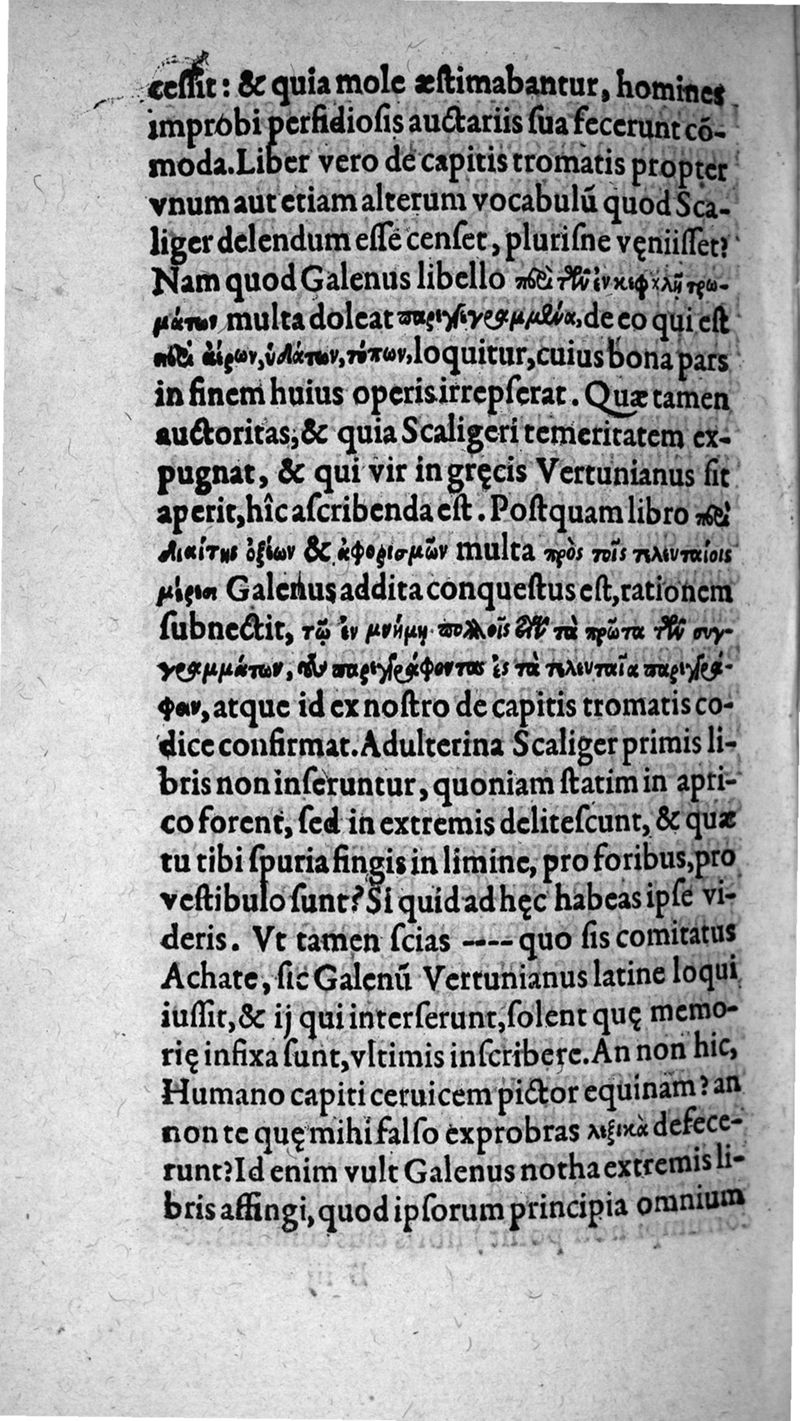 ceſſit: & quia mole æſtimabantur, homines
improbi perfidioſis auctariis ſua fecerunt cō-
moda. Liber vero de capitis tromatis propter
vnum aut etiam alterum vocabulū quod Sca-
liger delendum eſſe cenſet, pluriſne vęniiſſet?
Nam quod Galenus libello περὶ τῶν ἐν κεφαλῇ τρω-
μάτων multa doleat παρεγγεγραμμένα, de eo qui eſt
περὶ ἀέρων, ὑδάτων, τόπων, loquitur, cuius bona pars
in finem huius operis irrepſerat. Quæ tamen
auctoritas, & quia Scaligeri temeritatem ex-
pugnat, & qui vir in gręcis Vertunianus ſit
aperit, hîc aſcribenda eſt. Poſtquam libro περὶ
διαίτης ὀξέων & ἀφορισμῶν multa πρὸς τοῖς τελευταίοις
μέρεσι Galenus addita conqueſtus eſt, rationem
ſubnectit, τῷ ἐν μνήμῃ πολλοῖς εἶναι τὰ πρῶτα τῶν συγ-
γραμμάτων, τοὺς παρεγγράφοντας εἰς τὰ τελευταῖα παρεγγρά-
φειν, atque id ex noſtro de capitis tromatis co-
dice confirmat. Adulterina Scaliger primis li-
bris non inſeruntur, quoniam ſtatim in apri-
co forent, ſed in extremis deliteſcunt, & quæ
tu tibi ſpuria fingis in limine, pro foribus, pro
veſtibulo ſunt? Si quid ad hęc habeas ipſe vi-
deris. Vt tamen ſcias ---- quo ſis comitatus
Achate, ſic Galenū Vertunianus latine loqui
iuſſit, & ij qui interſerunt, ſolent quę memo-
rię infixa ſunt, vltimis inſcribere. An non hic,
Humano capiti ceruicem pictor equinam? an
non te quę mihi falſo exprobras λεξικὰ defece-
runt? Id enim vult Galenus notha extremis li-
bris affingi, quod ipſorum principia omnium